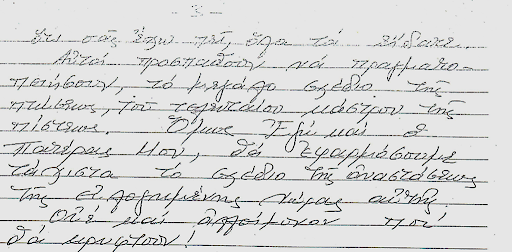 - 3 -
ὅτι σᾶς ἔχω πεῖ, ὅλα τά εἴδατε.
Αὐτοί προσπαθοῦν νά πραγματο-
ποιήσουν, τό μεγάλο σχέδιο τῆς
πτώσεως, τοῦ τελευταίου κάστρου τῆς
πίστεως. Ὅμως Ἐγώ καί ὁ
Πατέρας Μου, θά ἐφαρμόσουμε
τάχιστα τό σχέδιο τῆς ἀναστάσεως
τῆς εὐλογημένης χώρας αὐτῆς.
Οὐαί καί ἀλλοίμονον πού
θά κρυφτοῦν!